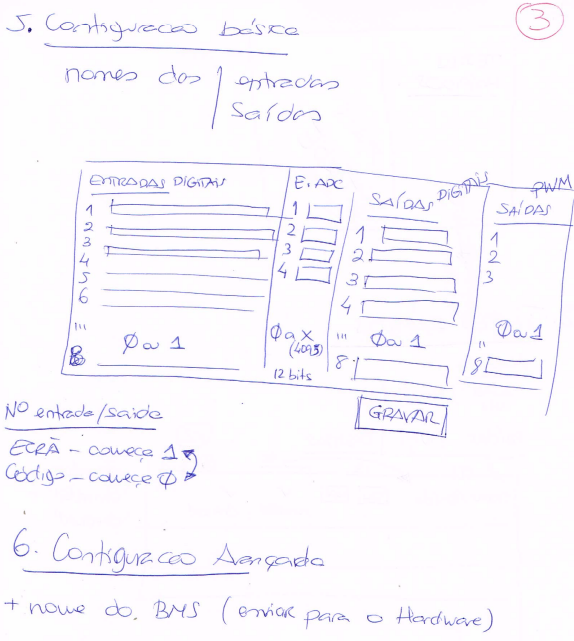 3
5. Configuracao básica
nomes das entradas
Saídas
ENTRADAS DIGITAIS
1
2
3
4
5
6
...
8
Ø ou 1
E. ADC
1
2
3
4
Ø a X
(4095)
12 bits
SAÍDAS DIGITAIS
1
2
3
4
...
8
Ø ou 1
SAÍDAS PWM
1
2
3
..
8
Ø ou 1
GRAVAR
Nº entrada/saida
ECRÃ - começa 1
Código - começa Ø
6. Configuracao Avançada
+ nome do. BMS (enviar para o Hardware)